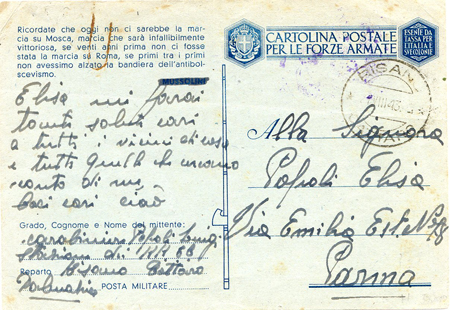 Ricordate che oggi non ci sarebbe la mar-
cia su Mosca, marcia che sarà infallibilmente
vittoriosa, se venti anni prima non ci fosse
stata la marcia su Roma, se primi tra i primi
non avessimo alzato la bandiera dell'antibol-
scevismo.
MUSSOLINI
Elisa mi farai
tanti saluti cari
a tutti i vicini di casa
e tutti quelli che
conto di me
baci cari ciaò
Grado, Cognome e Nome del mittente:
carabiniere Popoli Luigi
Stazione di
Reparto Risano Cattaro
Dalmazia POSTA MILITARE
CARTOLINA POSTALE
PER LE FORZE ARMATE
ESENTE DA
TASSA PER
L'ITALIA E
COLONIE
RISANO
Alla Signora
Popoli Elisa
Via Emilia Est N°
Parma